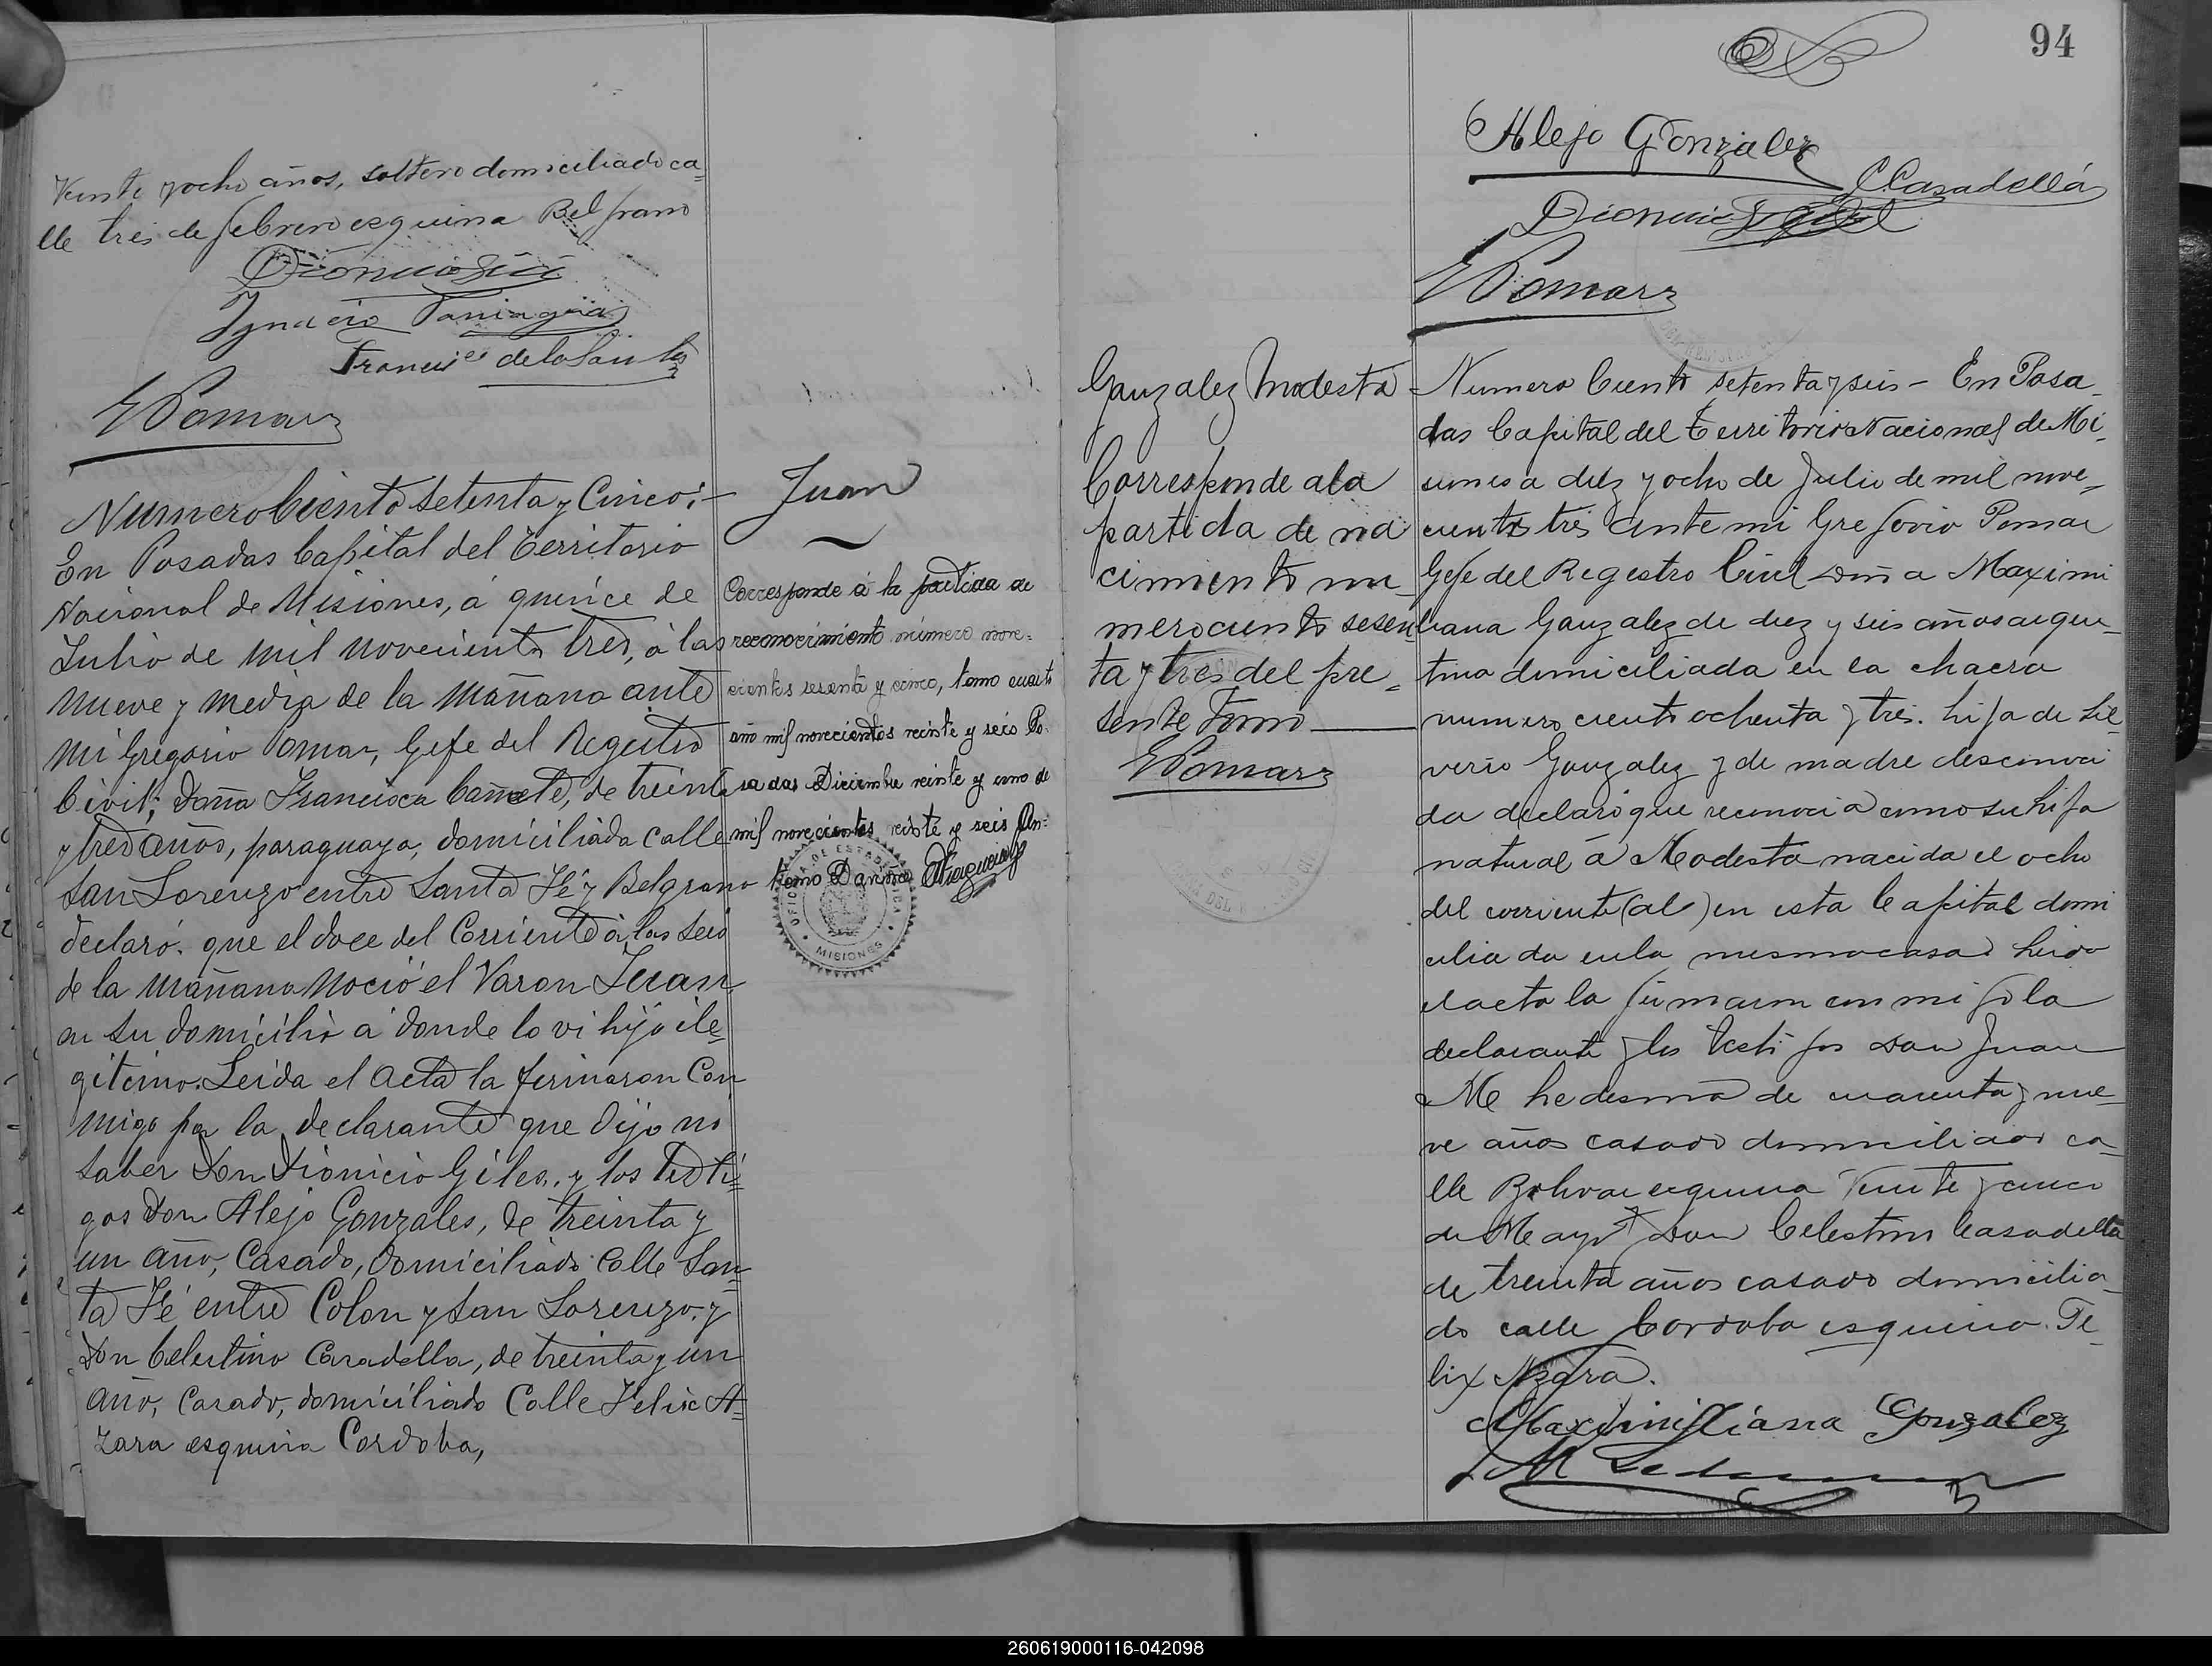 Veinte y ocho años, soltero domiciliado ca=
lle tres de febrero esquina Belgrano
Ignacio Paniagua
Francisco de los Santos
G Pomar
Numero Ciento Setenta y Cinco:—
En Posadas Capital del Territorio
Nacional de Misiones, á quince de
Julio de mil novecientos tres, á las
nueve y media de la mañana ante
mi Gregorio Pomar, Gefe del Registro
Civil; doña Francisca Cañete, de treinta
y tres años, paraguaya, domiciliada calle
San Lorenzo entre Santa Fé y Belgrano
declaró: que el doce del Corriente á las seis
de la mañana nació el Varon Juan
en su domicilio a donde lo vi hijo ile=
gitimo. Leida el acta la firmaron Con
migo por la declarante que dijo no
saber Don Dionicio Giles, y los testi=
gos Don Alejo Gonzales, de treinta y
un año, Casado, domiciliado Calle San=
ta Fé entre Colon y San Lorenzo y
Don Celestino Casadella, de treinta y un
año, Casado, domiciliado Calle Felix A=
zara esquina Cordoba,
Juan
Corresponde á la partida de
reconocimiento número nove-
cientos sesenta y cinco, tomo cuarto
año mil novecientos veinte y seis Po-
sadas Diciembre veinte y uno de
mil novecientos veinte y seis An-
OFICINA DE ESTADISTICA
MISIONES
94
Alejo Gonzalez
C Casadellá
G Pomar
Gonzalez Modesta
Corresponde a la
partida de na
cimiento nu
mero ciento sesen
ta y tres del pre=
sente Tomo
G Pomar
Numero Ciento setenta y seis – En Posa
das Capital del Territorio Nacional de Mi
siones a diez y ocho de Julio de mil nove=
cientos tres ante mi Gregorio Pomar
Gefe del Registro Civil doña Maximi
liana Gonzalez de diez y seis años argen=
tina domiciliada en la chacra
numero ciento ochenta y tres. hija de Sil
verio Gonzalez y de madre desconoci
da declaró que reconocia como su hija
natural á Modesta nacida el ocho
del corriente (al) en esta Capital domi
ciliada en la misma casa. Leido
el acta la firmaron con migo la
declarante y los testigos Don Juan
de cuarenta y nue=
ve años casado domiciliado ca=
lle Bolivar esquina Veinte y cinco
de Mayo y Don Celestino Casadella
de treinta años casado domicilia
do calle Cordoba esquina Fe=
lix Azara.
Maximiliana Gonzalez
260619000116-042098